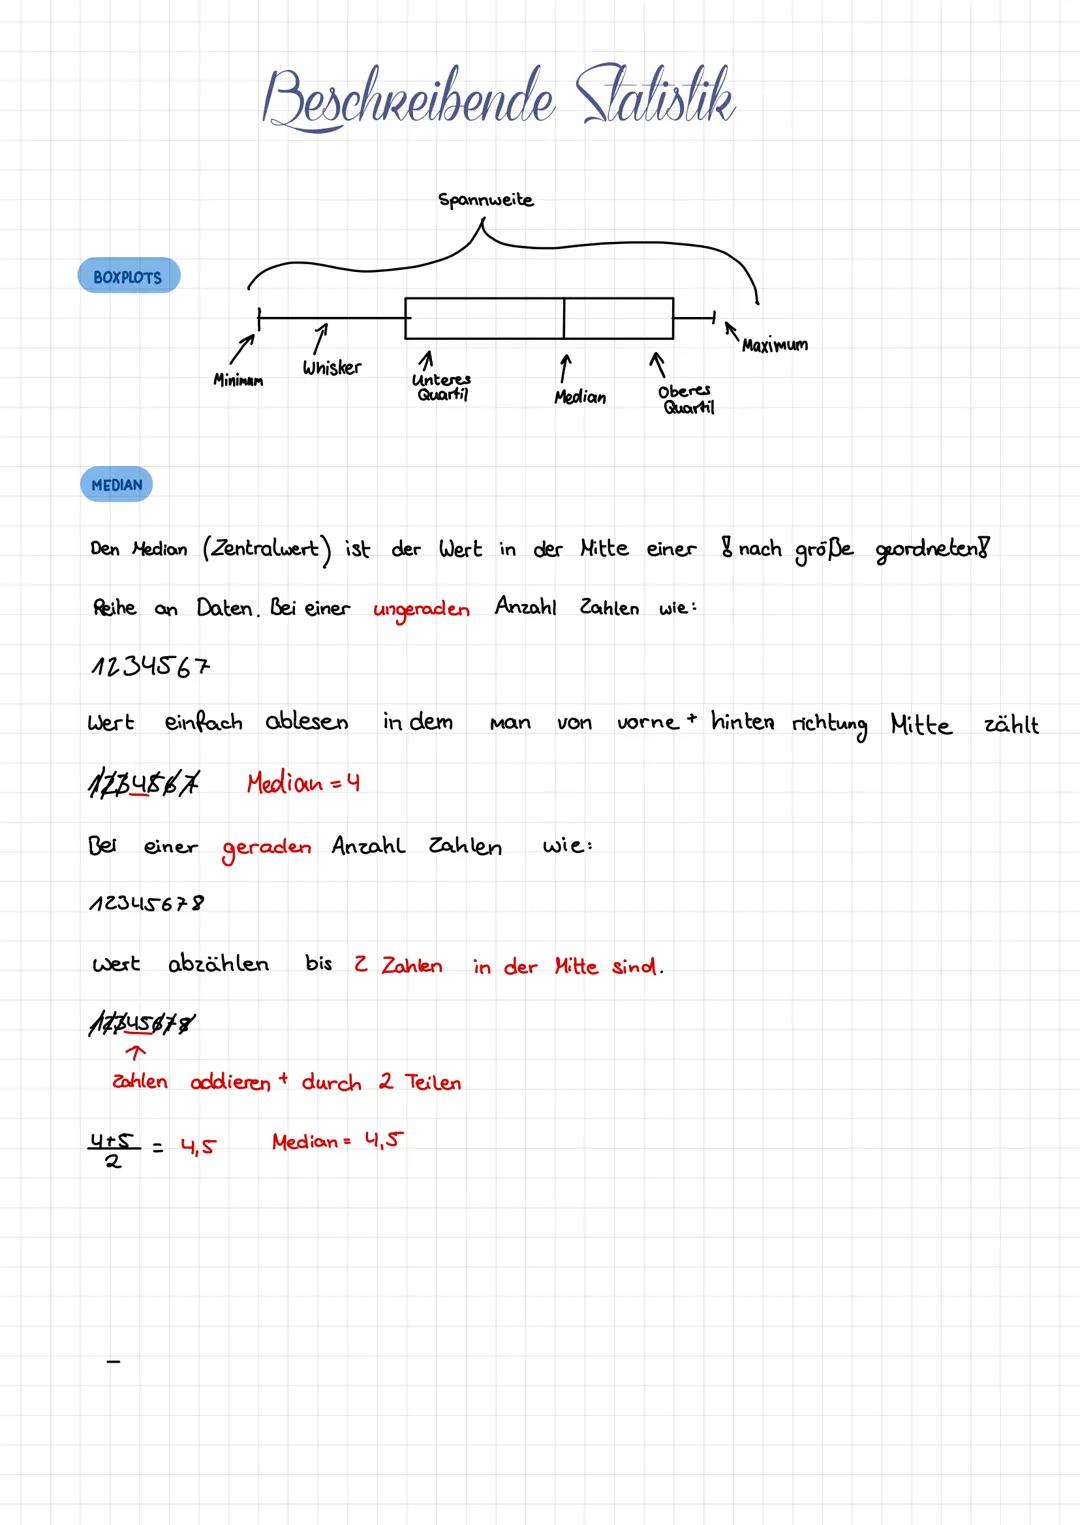 Beschreibende Statistik
Spannweite
BOXPLOTS
Minimum
Whisker
Unteres
Quartil
Median
Oberes
Quartil
Maximum
MEDIAN
Den Median (Zentralwert) ist der Wert in der Mitte einer ! nach größe geordneten!
Reihe an Daten. Bei einer ungeraden Anzahl Zahlen wie:
1234567
Wert einfach ablesen in dem man von vorne + hinten richtung Mitte zählt
1234567 Median = 4
Bei einer geraden Anzahl Zahlen wie:
12345678
Wert abzählen bis 2 Zahlen in der Mitte sind.
12345678
↑
Zahlen addieren + durch 2 Teilen
4+5/2 = 4,5 Median = 4,5